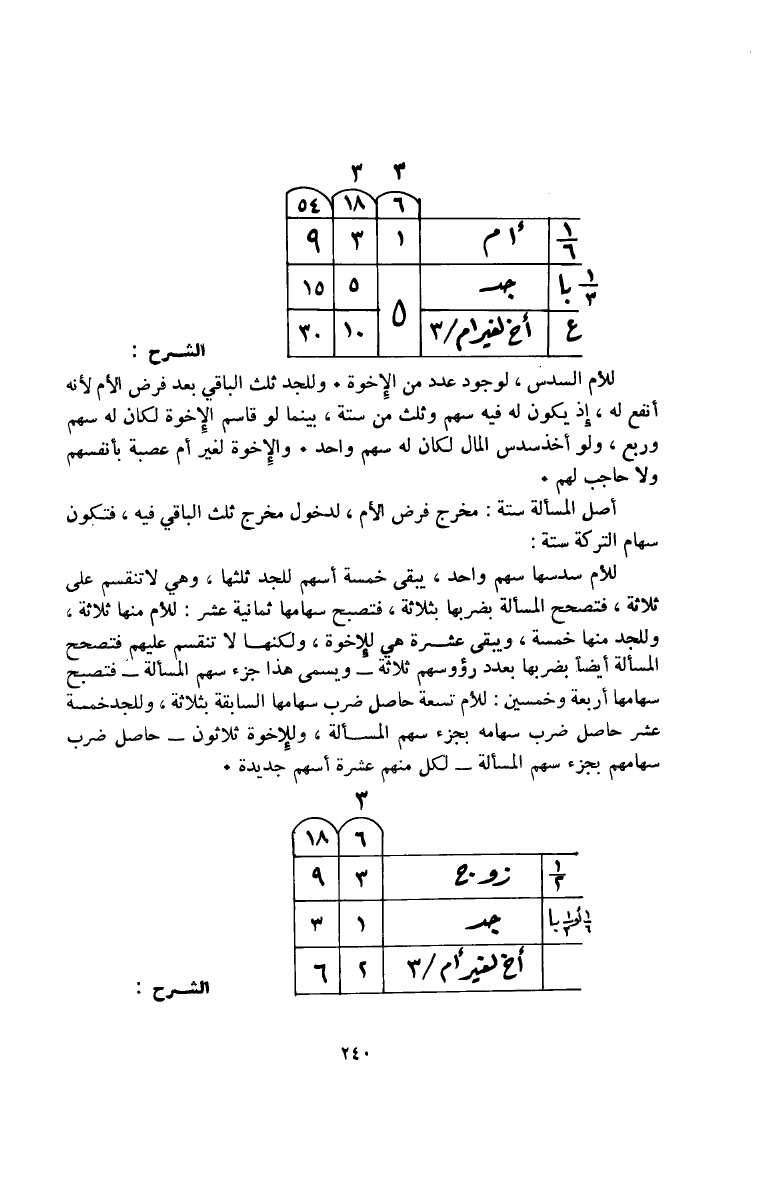 ٣ ٣
٦ ١٨ ٥٤
١/٦ أم ١ ٣ ٩
١/٣ با جد ٥ ٥ ١٥
ع أخ لغير أم/٣ ١٠ ٣٠
الشرح :
للأم السدس ، لوجود عدد من الإخوة • وللجد ثلث الباقي بعد فرض الأم لأنه
أنفع له ، إذ يكون له فيه سهم وثلث من ستة ، بينما لو قاسم الإخوة لكان له سهم
وربع ، ولو أخذسدس المال لكان له سهم واحد • والإخوة لغير أم عصبة بأنفسهم
ولا حاجب لهم •
أصل المسألة ستة : مخرج فرض الأم ، لدخول مخرج ثلث الباقي فيه ، فتكون
سهام التركة ستة :
للأم سدسها سهم واحد ، يبقى خمسة أسهم للجد ثلثها ، وهي لاتنقسم على
ثلاثة ، فتصحح المسألة بضربها بثلاثة ، فتصبح سهامها ثمانية عشر : للأم منها ثلاثة ،
وللجد منها خمسة ، ويبقى عشرة هي للإخوة ، ولكنها لا تنقسم عليهم فتصحح
المسألة أيضاً بضربها بعدد رؤوسهم ثلاثة ــ ويسمى هذا جزء سهم المسألة ــ فتصبح
سهامها أربعة وخمسين : للأم تسعة حاصل ضرب سهامها السابقة بثلاثة ، وللجدخمسة
عشر حاصل ضرب سهامه بجزء سهم المسألة ، وللإخوة ثلاثون ــ حاصل ضرب
سهامهم بجزء سهم المسألة ــ لكل منهم عشرة أسهم جديدة •
٣
٦ ١٨
١/٢ زوج ٣ ٩
١/٦ أو ١/٣ با جد ١ ٣
أخ لغير أم/٣ ٢ ٦
الشرح :
٢٤٠